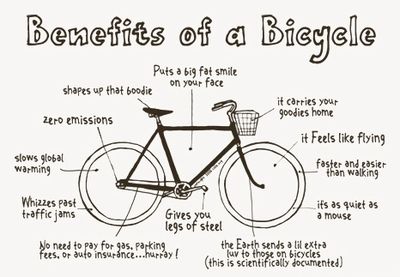 Benefits of a Bicycle
Puts a big fat smile
on your face
shapes up that boodie
it carries your
goodies home
zero emissions
it Feels like flying
slows global
warming
faster and easier
than walking
Whizzes past
traffic jams
it's as quiet as
a mouse
Gives you
legs of steel
No need to pay for gas, parking
fees, or auto insurance...hurray!
the Earth sends a lil extra
luv to those on bicycles
(this is scientifically documented)